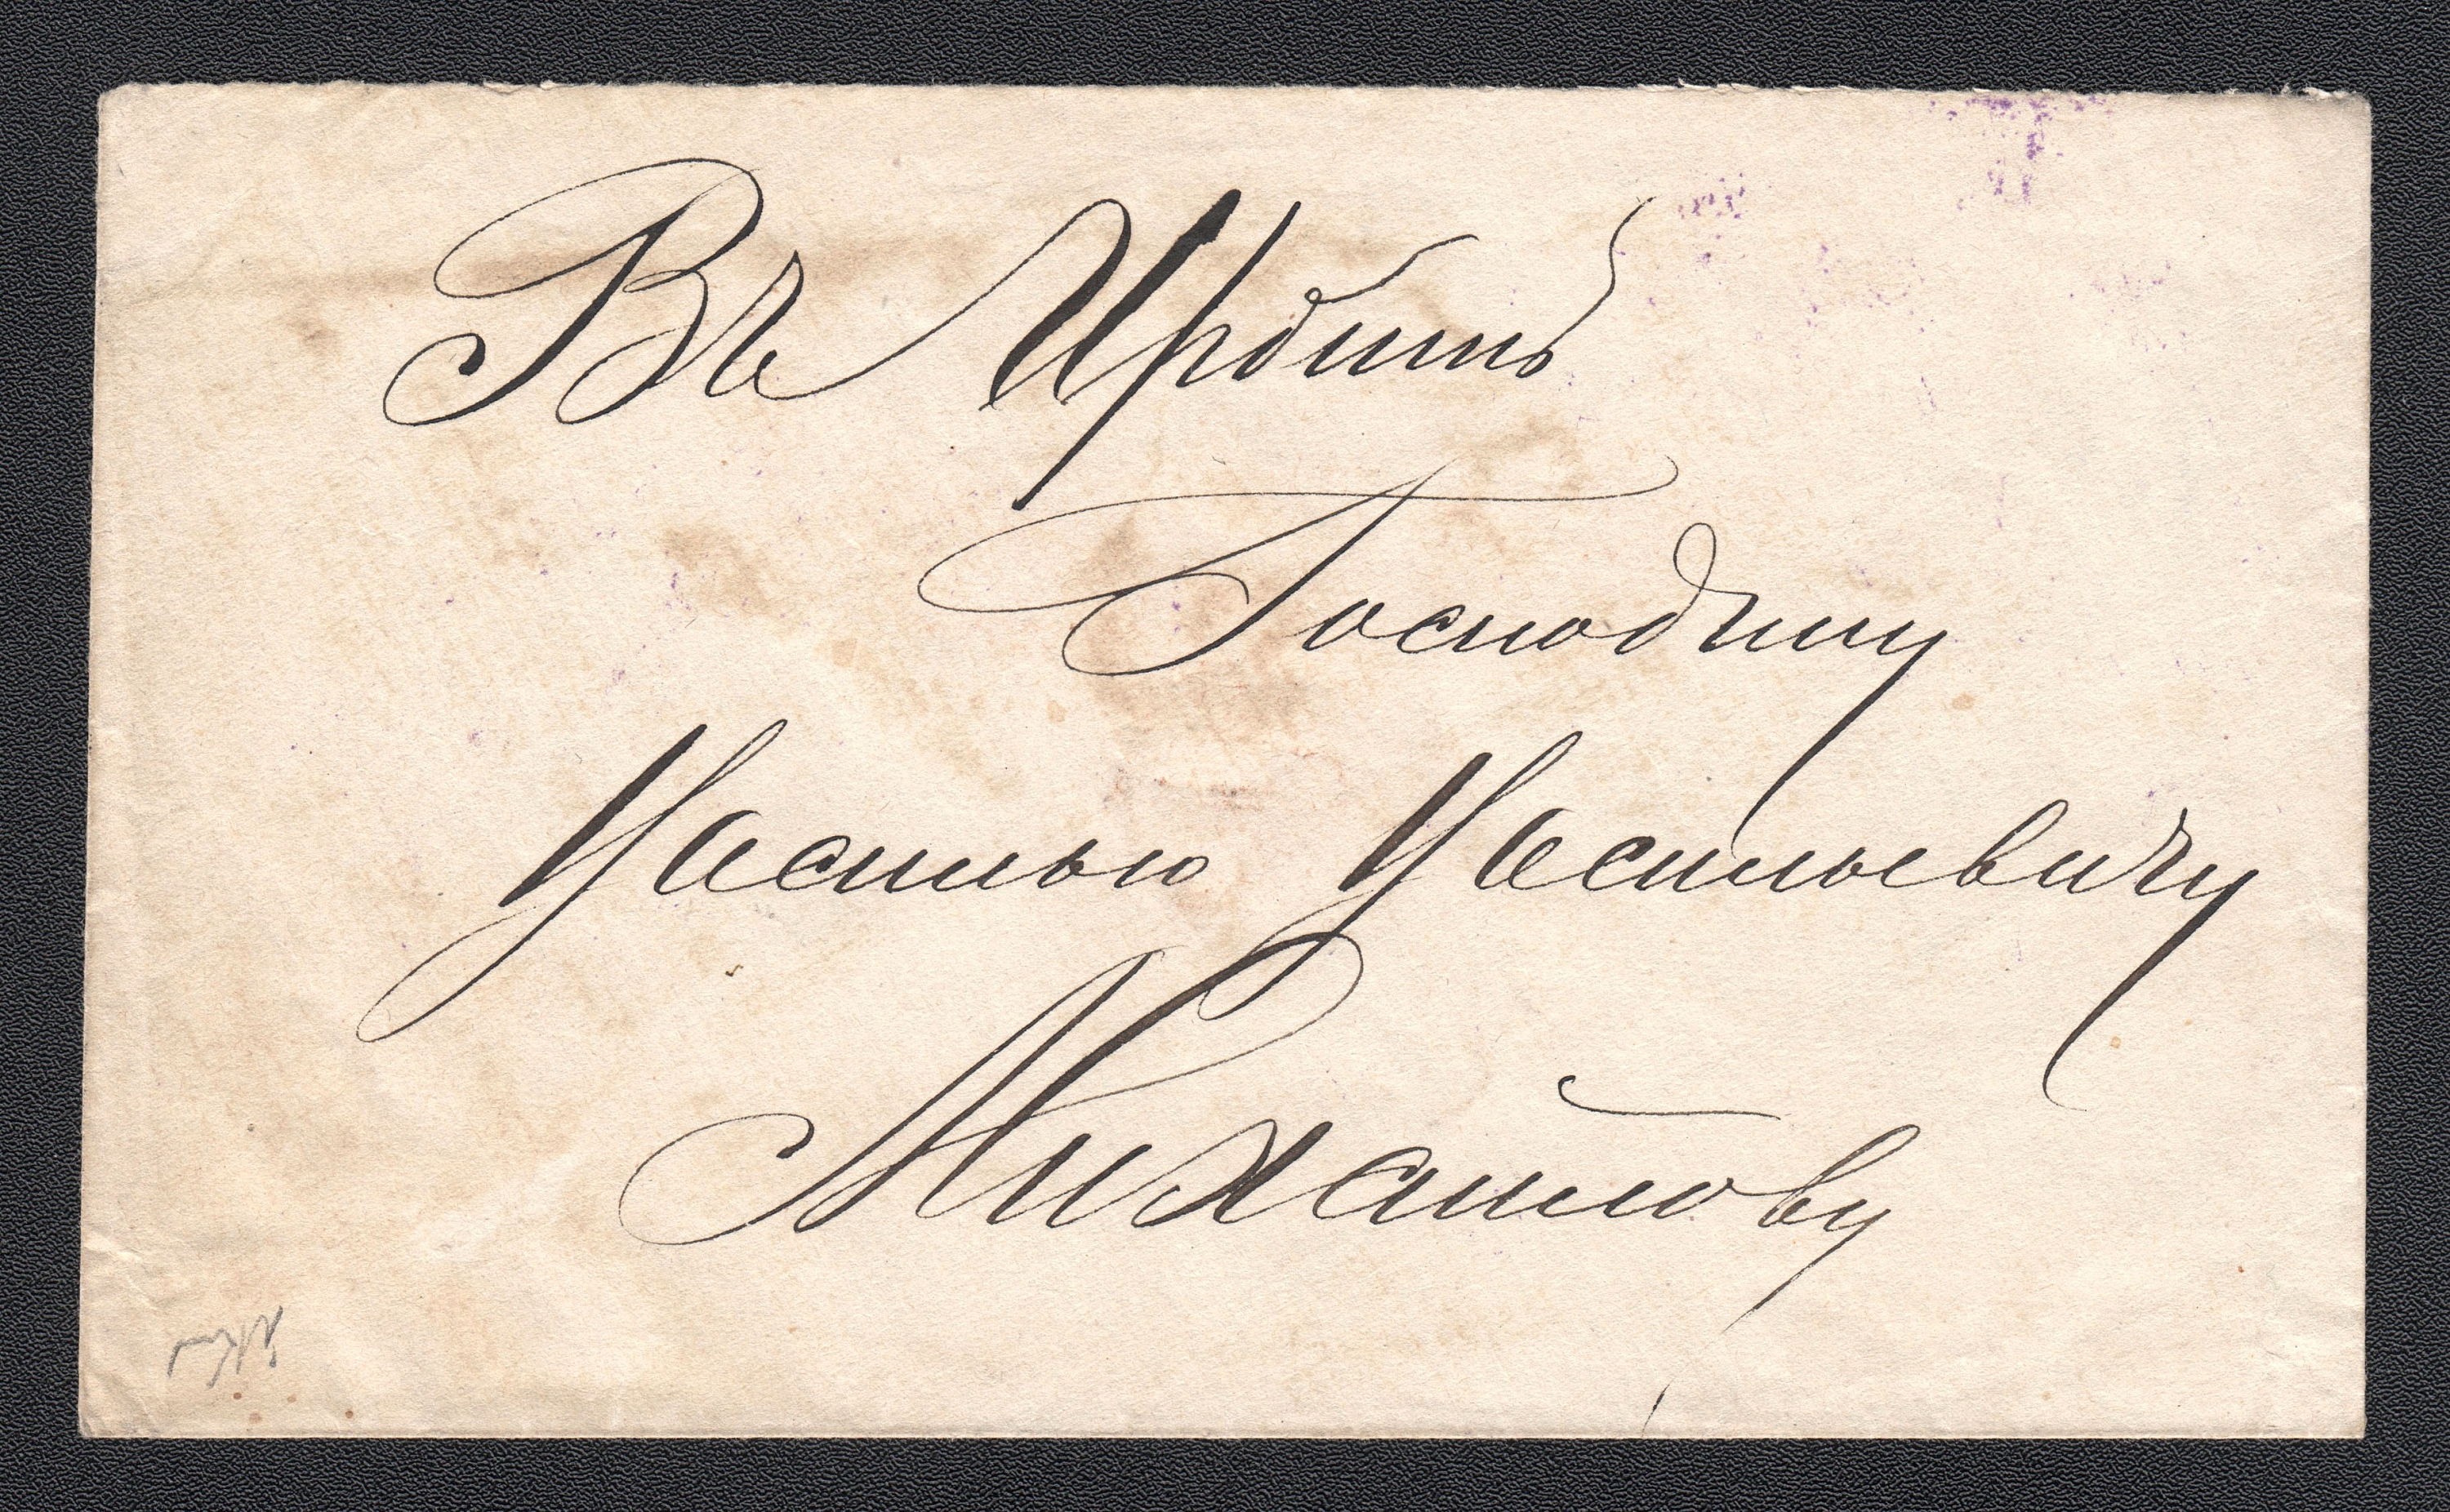 Въ Ирбитъ
Господину
Василью Васильевичу
Михайлову